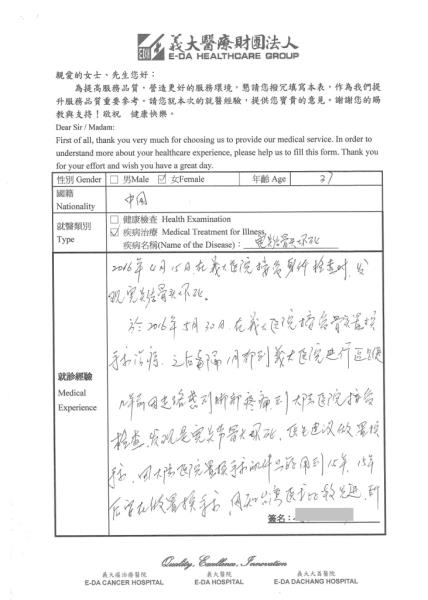 義大醫療財團法人
E-DA HEALTHCARE GROUP
親愛的女士、先生您好：
為提高服務品質，營造更好的服務環境，懇請您撥冗填寫本表，作為我們提
升服務品質重要參考。請您就本次的就醫經驗，提供您寶貴的意見。謝謝您的賜
教與支持！敬祝 健康快樂。
Dear Sir / Madam:
First of all, thank you very much for choosing us to provide our medical service. In order to
understand more about your healthcare experience, please help us to fill this form. Thank you
for your effort and wish you have a great day.
性別 Gender □ 男Male ☑ 女Female 年齡 Age 37
國籍
Nationality
中国
就醫類別
Type
□ 健康檢查 Health Examination
☑ 疾病治療 Medical Treatment for Illness,
疾病名稱(Name of the Disease)：骨头坏死
就診經驗
Medical
Experience
2016年4月15日在義大医院接受身体检查时，发
现骨头坏死。
於2016年5月30日，在義大医院接受置换
手術治療，之后每隔1月都到義大医院进行
年前因走路感到脚部疼痛，到大陆医院接受
检查，发现是骨头坏死，医生建议做置换
手術，因大陆医院置换手術用到15年，15年
后在做置换手術，因知台湾医疗比较先进，到
簽名：
Quality, Excellence, Innovation
義大癌治療醫院
E-DA CANCER HOSPITAL
義大醫院
E-DA HOSPITAL
義大大昌醫院
E-DA DACHANG HOSPITAL